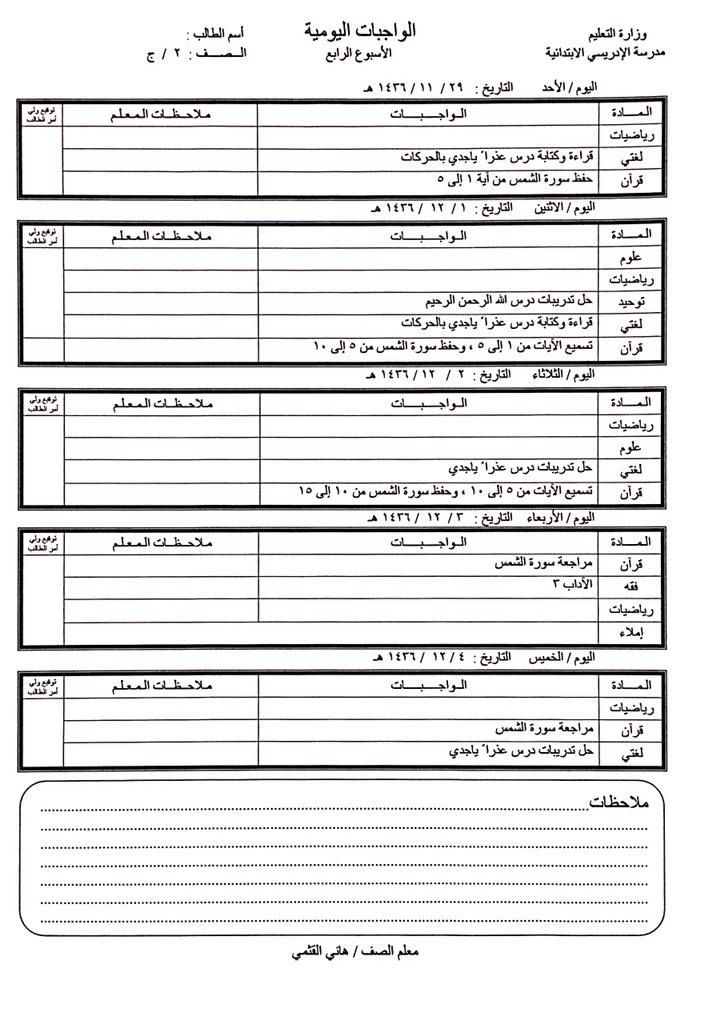 وزارة التعليم
مدرسة الإدريسي الابتدائية
الواجبات اليومية
الأسبوع الرابع
أسم الطالب :
الـصـف : ٢ / ج
اليوم / الأحد التاريخ : ٢٩ / ١١ / ١٤٣٦ هـ
المـادة الـواجـبـات ملاحظات المعلم توقيع ولي أمر الطالب
رياضيات
لغتي قراءة وكتابة درس عذراً ياجدي بالحركات
قرآن حفظ سورة الشمس من أية ١ إلى ٥
اليوم / الاثنين التاريخ : ١ / ١٢ / ١٤٣٦ هـ
المـادة الـواجـبـات ملاحظات المعلم توقيع ولي أمر الطالب
علوم
رياضيات
توحيد حل تدريبات درس الله الرحمن الرحيم
لغتي قراءة وكتابة درس عذراً ياجدي بالحركات
قرآن تسميع الآيات من ١ إلى ٥ ، وحفظ سورة الشمس من ٥ إلى ١٠
اليوم / الثلاثاء التاريخ : ٢ / ١٢ / ١٤٣٦ هـ
المـادة الـواجـبـات ملاحظات المعلم توقيع ولي أمر الطالب
رياضيات
علوم
لغتي حل تدريبات درس عذراً ياجدي
قرآن تسميع الآيات من ٥ إلى ١٠ ، وحفظ سورة الشمس من ١٠ إلى ١٥
اليوم / الأربعاء التاريخ : ٣ / ١٢ / ١٤٣٦ هـ
المـادة الـواجـبـات ملاحظات المعلم توقيع ولي أمر الطالب
قرآن مراجعة سورة الشمس
فقه الآداب ٣
رياضيات
إملاء
اليوم / الخميس التاريخ : ٤ / ١٢ / ١٤٣٦ هـ
المـادة الـواجـبـات ملاحظات المعلم توقيع ولي أمر الطالب
رياضيات
قرآن مراجعة سورة الشمس
لغتي حل تدريبات درس عذراً ياجدي
ملاحظات
معلم الصف / هاني القثمي